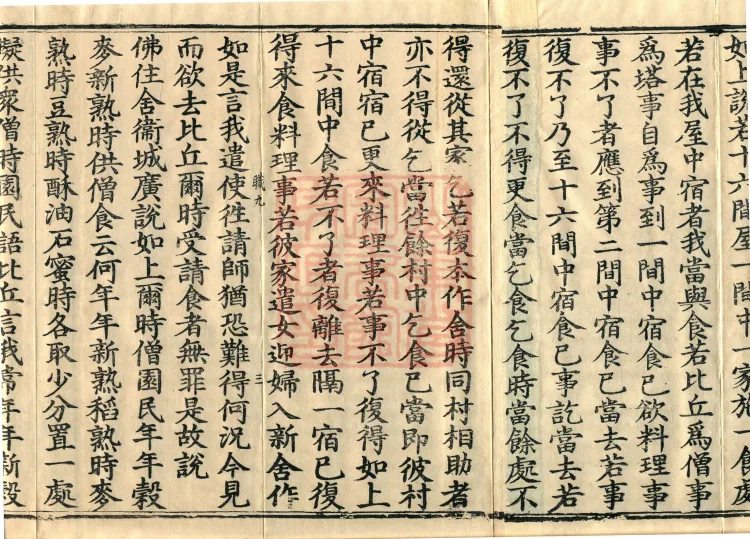 如上說若十六間屋一間中一家施一食處
若在我屋中宿者我當與食若比丘爲僧事
爲塔事自爲事到一間中宿食已欲料理事
事不了者應到第二間中宿食已當去若事
復不了乃至十六間中宿食已事訖當去若
復不了不得更食當乞食乞食時當餘處不
得還從其家乞若復本作舍時同村相助者
亦不得從乞當徃餘村中乞食已當即彼村
中宿宿已更來料理事若事不了復得如上
十六間中食若不了者復離去隔一宿已復
得來食料理事若彼家遣女迎婦入新舍作
職九
三
如是言我遣使徃請師猶恐難得何況今見
而欲去比丘爾時受請食者無罪是故說
佛住舍衞城廣說如上爾時僧園民年年穀
麥新熟時供僧食云何年年新熟稻熟時麥
熟時豆熟時酥油石蜜時各取少分置一處
擬供衆僧時園民語比丘言我常年年新穀